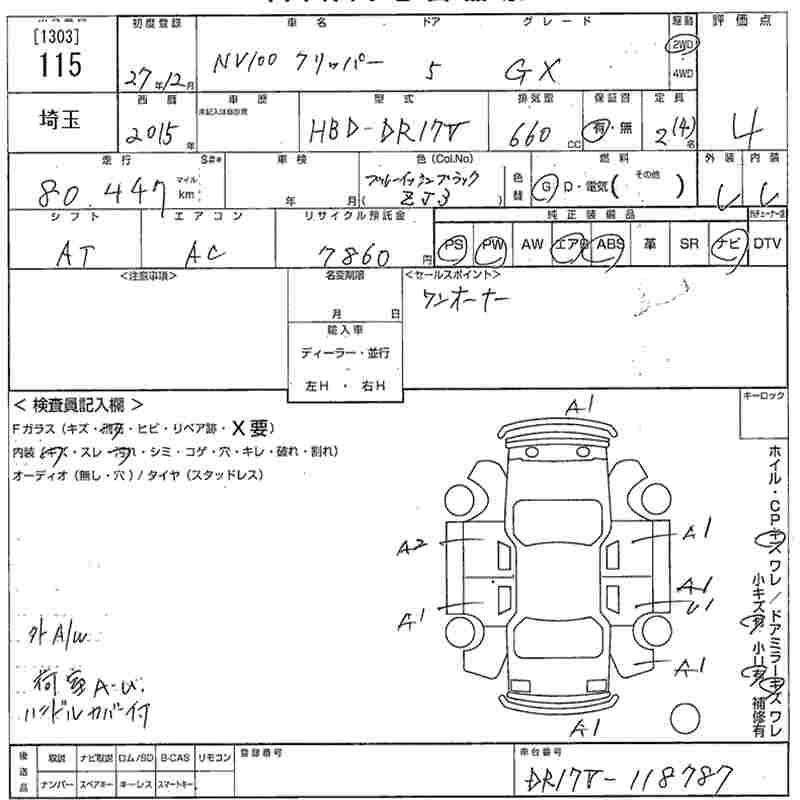 [1303]
115
初度登録
車名
ドア
グレード
駆動
評価点
27年12月
NV100 クリッパー
5
GX
2WD
4WD
埼玉
西暦
車歴
型式
排気量
保証書
定員
未記入は自家用
2015年
HBD-DR17V
660cc
有・無
2(4)名
4
走行
S#*
車検
色(Col.No)
燃料
外装
内装
80,447
マイル
km
年 月
ZJ3
色替
G D・電気( その他 )
シフト
エアコン
リサイクル預託金
純正装備品
AT
AC
7860円
PS
PW
AW
エアB
ABS
革
SR
ナビ
DTV
<注意事項>
名変期限
<セールスポイント>
月 日
ワンオーナー
輸入車
ディーラー・並行
左H・右H
<検査員記入欄>
キーロック
Fガラス(キズ・飛石・ヒビ・リペア跡・X要)
内装(キズ・スレ・汚れ・シミ・コゲ・穴・キレ・破れ・割れ)
オーディオ(無し・穴)/タイヤ(スタッドレス)
A1
A2
A1
A1
A1
U1
A1
A1
ホイル・CPキズ ワレ/ドアミラーキズ ワレ
小キズ有 小U有 補修有
外 A/W
荷室 A-U.
ハンドルカバー付
後送品
取説
ナビ取説
ロム/SD
B-CAS
リモコン
ナンバー
スペアキー
キーレス
スマートキー
登録番号
車台番号
DR17V-118787